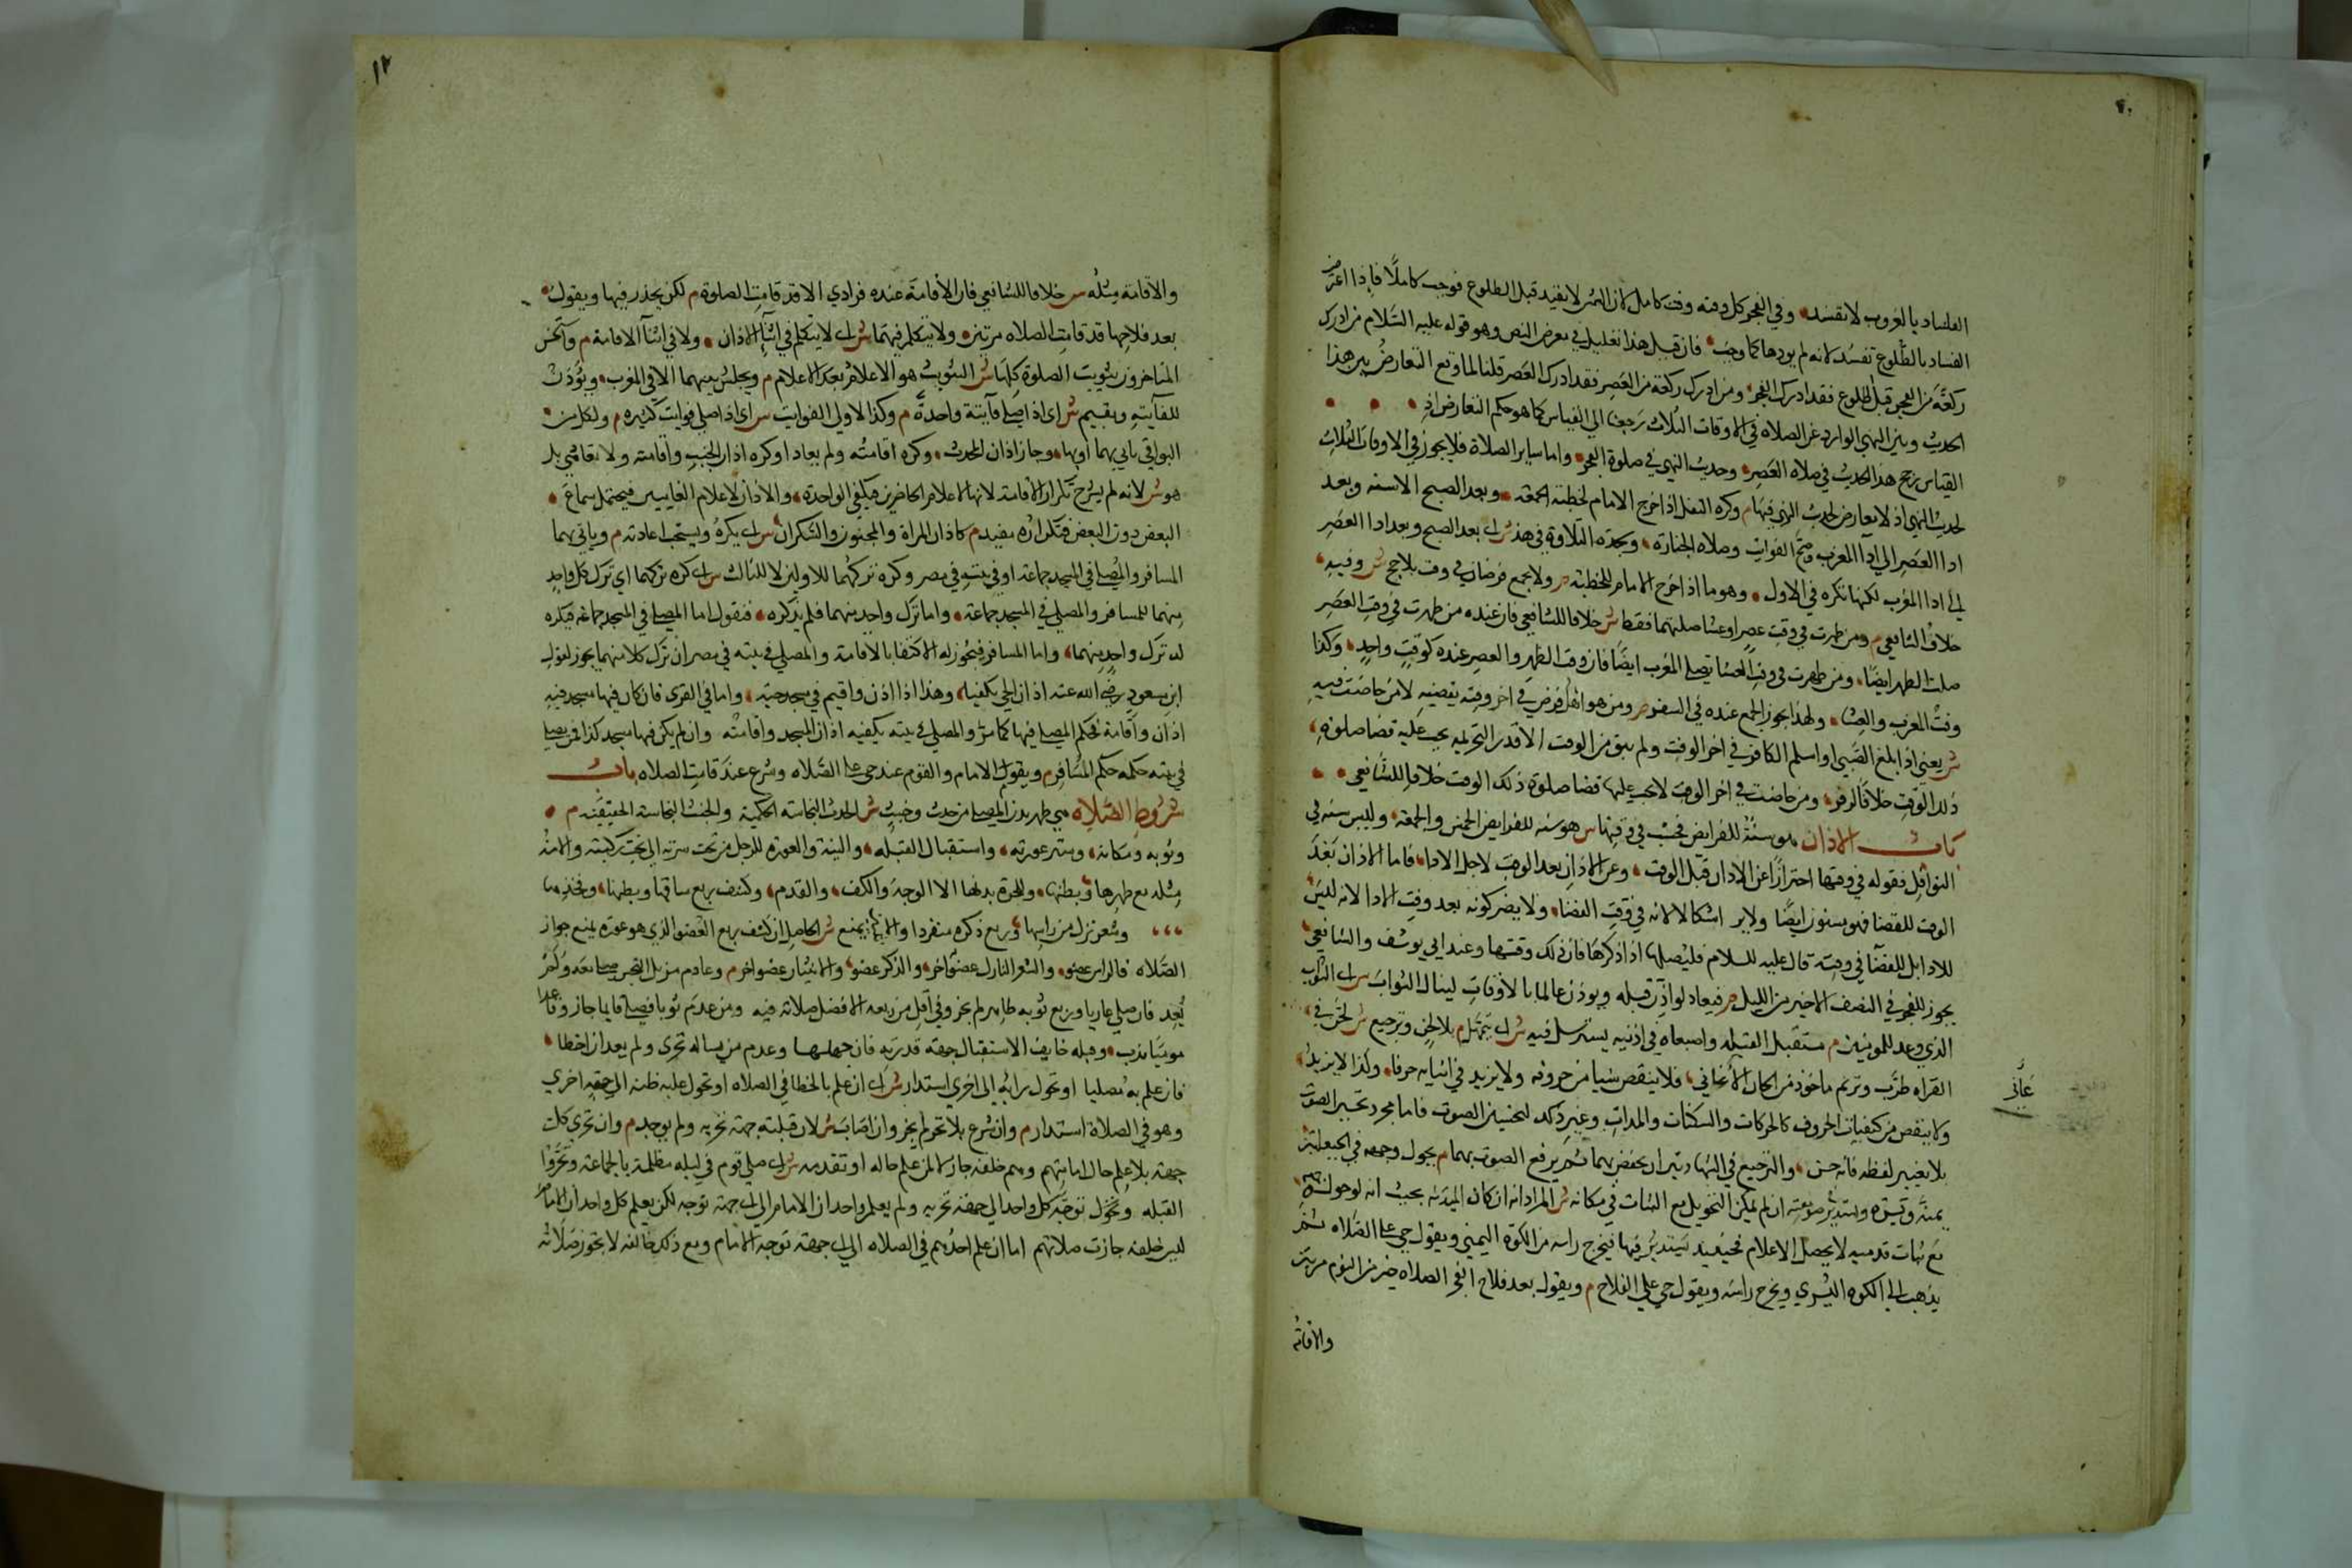 الفساد بالغروب لا تفسد وفي الفجر كل وقته وقت كامل لان الشمس لا تعبد قبل الطلوع فوجب كاملا فاذا اعترض
الفساد بالطلوع تفسد لانه لم يودها كما وجب فان قيل هذا تعليل في معرض النص وهو قوله عليه السلام من ادرك
ركعة من الفجر قبل الطلوع فقد ادرك الفجر ومن ادرك ركعة من العصر فقد ادرك العصر قلنا لما وقع التعارض بين هذا
الحديث وبين النهي الوارد عن الصلاه في الاوقات الثلاث رجعنا الي القياس كما هو حكم التعارض اذ
القياس رجح هذا الحديث في صلاه العصر وحديث النهي في صلوة الفجر واما ساير الصلاة فلا يجوز في الاوقات الثلاث
لحديث النهي اذ لا تعارض لحديث النهي فيها م وكره النفل اذا خرج الامام لخطبة الجمعة وبعد الصبح الا سنه وبعد
ادا العصر الي ادا المغرب وصح الفوايت وصلاه الجنازه وسجدة التلاوة في هذ ش اي بعد الصبح وبعد ادا العصر
الي ادا المغرب لكنها تكره في الاول وهو ما اذا خرج الامام للخطبة م ولا يجمع فرضان في وقت بلا حج ش وفيه
خلاف الشافعي م ومن طهرت في وقت عصر او عشا صلتهما فقط ش خلافا للشافعي فان عنده من طهرت في وقت العصر
صلت الظهر ايضا ومن طهرت في وقت العشا تصلي المغرب ايضا فان وقت الظهر والعصر عنده كوقت واحد وكذا
وقت المغرب والعشا ولهذا يجوز الجمع عنده في السفر م ومن هو اهل فرض في اخر وقته يقضيه لا من حاضت فيه
ش يعني اذا بلغ الصبي او اسلم الكافر في اخر الوقت ولم يبق من الوقت الا قدر التحريمه يجب عليه قضا صلوة
ذلك الوقت خلافا لزفر ومن حاضت في اخر الوقت لا يجب عليها قضا صلوة ذلك الوقت خلافا للشافعي
باب الاذان هو سنة للفرايض فحسب في وقتها س هو سنه للفرايض الخمس والجمعه وليس سنه في
النوافل فقوله في وقتها احترازا عن الاذان قبل الوقت وعن الاذان بعد الوقت لاجل الادا فاما الاذان بعد
الوقت للقضا فهو مسنون ايضا ولا يرد اشكالا لانه في وقت القضا ولا يضر كونه بعد وقت الادا لانه ليس
للادا بل للقضا في وقته قال عليه السلام فليصلها اذا ذكرها فان ذلك وقتها وعند ابي يوسف والشافعي
يجوز للفجر في النصف الاخير من الليل م فيعاد لو اذن قبله ويوذن عالما بالاوقات لينال الثواب س اي الثواب
الذي وعد للموذنين م مستقبل القبله واصبعاه في اذنيه يسترسل فيه ش اي يتمهل م بلا لحن وترجيع ش لحن في
القراه طرب وترنم ماخوذ من الحان الاغاني فلا ينقص شيا من حروفه ولا يزيد في اثنايه حرفا وكذا لا يزيد
ولا ينقص من كيفيات الحروف كالحركات والسكنات والمدات وغير ذلك لتحسين الصوت فاما مجرد تحسين الصوت
بلا تغيير لفظه فانه حسن والترجيع في الشهادتين ان يخفض بهما ثم يرفع الصوت بهما م يحول وجهه في الحيعلتين
يمنة ويسره ويستدير في صومعته ان لم يمكن التحويل مع الثبات في مكانه ش المراد انه ان كان الميذنه بحيث انه لو حول وجهه
مع ثبات قدميه لا يحصل الاعلام فحينيذ يستدير فيها فيخرج راسه من الكوة اليمني ويقول حي علي الصلاه ثم
يذهب الي الكوه اليسري ويخرج راسه ويقول حي علي الفلاح م ويقول بعد فلاح الفجر الصلاه خير من النوم مرتين
والاقامة
١٢
والاقامة مثله س خلافا للشافعي فان الاقامة عنده فرادي الا قد قامت الصلوة م لكن يحدر فيها ويقول
بعد فلاحها قد قامت الصلاه مرتين ولا يتكلم فيهما ش اي لا يتكلم في اثنا الاذان ولا في اثنا الاقامة م واستحسن
المتاخرون تثويب الصلوة كلها ش التثويب هو الاعلام بعد الاعلام م ويجلس بينهما الا في المغرب ويؤذن
للفايتة ويقيم ش اي اذا صلي فايتة واحدة م وكذا لاولي الفوايت س اي اذا صلي فوايت كثيره م ولكل من
البواقي ياتي بهما او بها وجاز اذان المحدث وكره اقامته ولم يعاد او كره اذان الجنب واقامته ولا تعاد هي بل
هو ش لانه لم يشرح تكرار الاقامة لانها لاعلام الحاضرين فيكفي الواحدة والاذان لاعلام الغايبين فيحتمل سماع
البعض دون البعض فتكراره مفيد م كاذان المراة والمجنون والسكران س اي يكره ويستحب اعادته م وياتي بهما
المسافر والمصلي في المسجد جماعة او في بيته في مصر وكره تركهما للاولين لا للثالث س اي كره تركهما اي ترك كل واحد
منهما للمسافر والمصلي في المسجد جماعة واما ترك واحد منهما فلم يذكره فنقول اما المصلي في المسجد جماعة فيكره
له ترك واحد منهما واما المسافر فيجوز له الاكتفا بالاقامة والمصلي في بيته في مصر ان ترك كلا منهما يجوز لقول
ابن مسعود رضي الله عنه اذان الحي يكفينا وهذا اذا اذن واقيم في مسجد حيه واما في القري فان كان فيها مسجد فيه
اذان واقامة فحكم المصلي فيها كما مر والمصلي في بيته يكفيه اذان المسجد واقامته وان لم يكن فيها مسجد كذا فمن يصلي
في بيته حكمه حكم المسافر م ويقوم الامام والقوم عند حي علي الصلاه وشرع عند قامت الصلاه باب
شروط الصلاه هي طهر بدن المصلي من حدث وخبث ش الحدث النجاسة الحكمية والخبث النجاسة الحقيقية م
وثوبه ومكانه وستر عورته واستقبال القبله والنية والعورة للرجل من تحت سرته الي تحت ركبته والامة
مثله مع ظهرها وبطنها وللحرة بدنها الا الوجه والكف والقدم وكشف ربع ساقها وبطنها وفخذها
وشعر نزل من راسها وربع ذكره منفردا والانثيين يمنع ش الحاصل ان كشف ربع العضو الذي هو عورة يمنع جواز
الصلاه فالراس عضو والشعر النازل عضو اخر والذكر عضو والانثيان عضو اخر م وعادم مزيل النجس صلي معه ولم
يعد فان صلي عاريا وربع ثوبه طاهر لم يجز وفي اقل من ربعه الافضل صلاته فيه ومن عدم ثوبا فصلي قايما جاز وقاعدا
موميا ندب وقبله خايف الاستقبال جهة قدرته فان جهلها وعدم من يساله تحري ولم يعد ان اخطا
فان علم به مصليا او تحول رايه الي اخري استدار ش اي ان علم بالخطا في الصلاه او تحول غلبه ظنه الي جهة اخري
وهو في الصلاة استدار م وان شرع بلا تحر لم يجز وان اصاب ش لان قبلته جهة تحريه ولم يوجد م وان تحري كل
جهة بلا علم حال امامهم وهم خلفه جاز لا لمن علم حاله او تقدمه ش اي صلي قوم في ليله مظلمة بالجماعة وتحروا
القبله وتوجه كل واحد الي جهة تحريه ولم يعلم واحد ان الامام الي اي جهة توجه لكن يعلم كل واحد ان الامام
ليس خلفه جازت صلاتهم اما ان علم احدهم في الصلاه الي اي جهة توجه الامام ومع ذلك خالفه لا يجوز صلاته